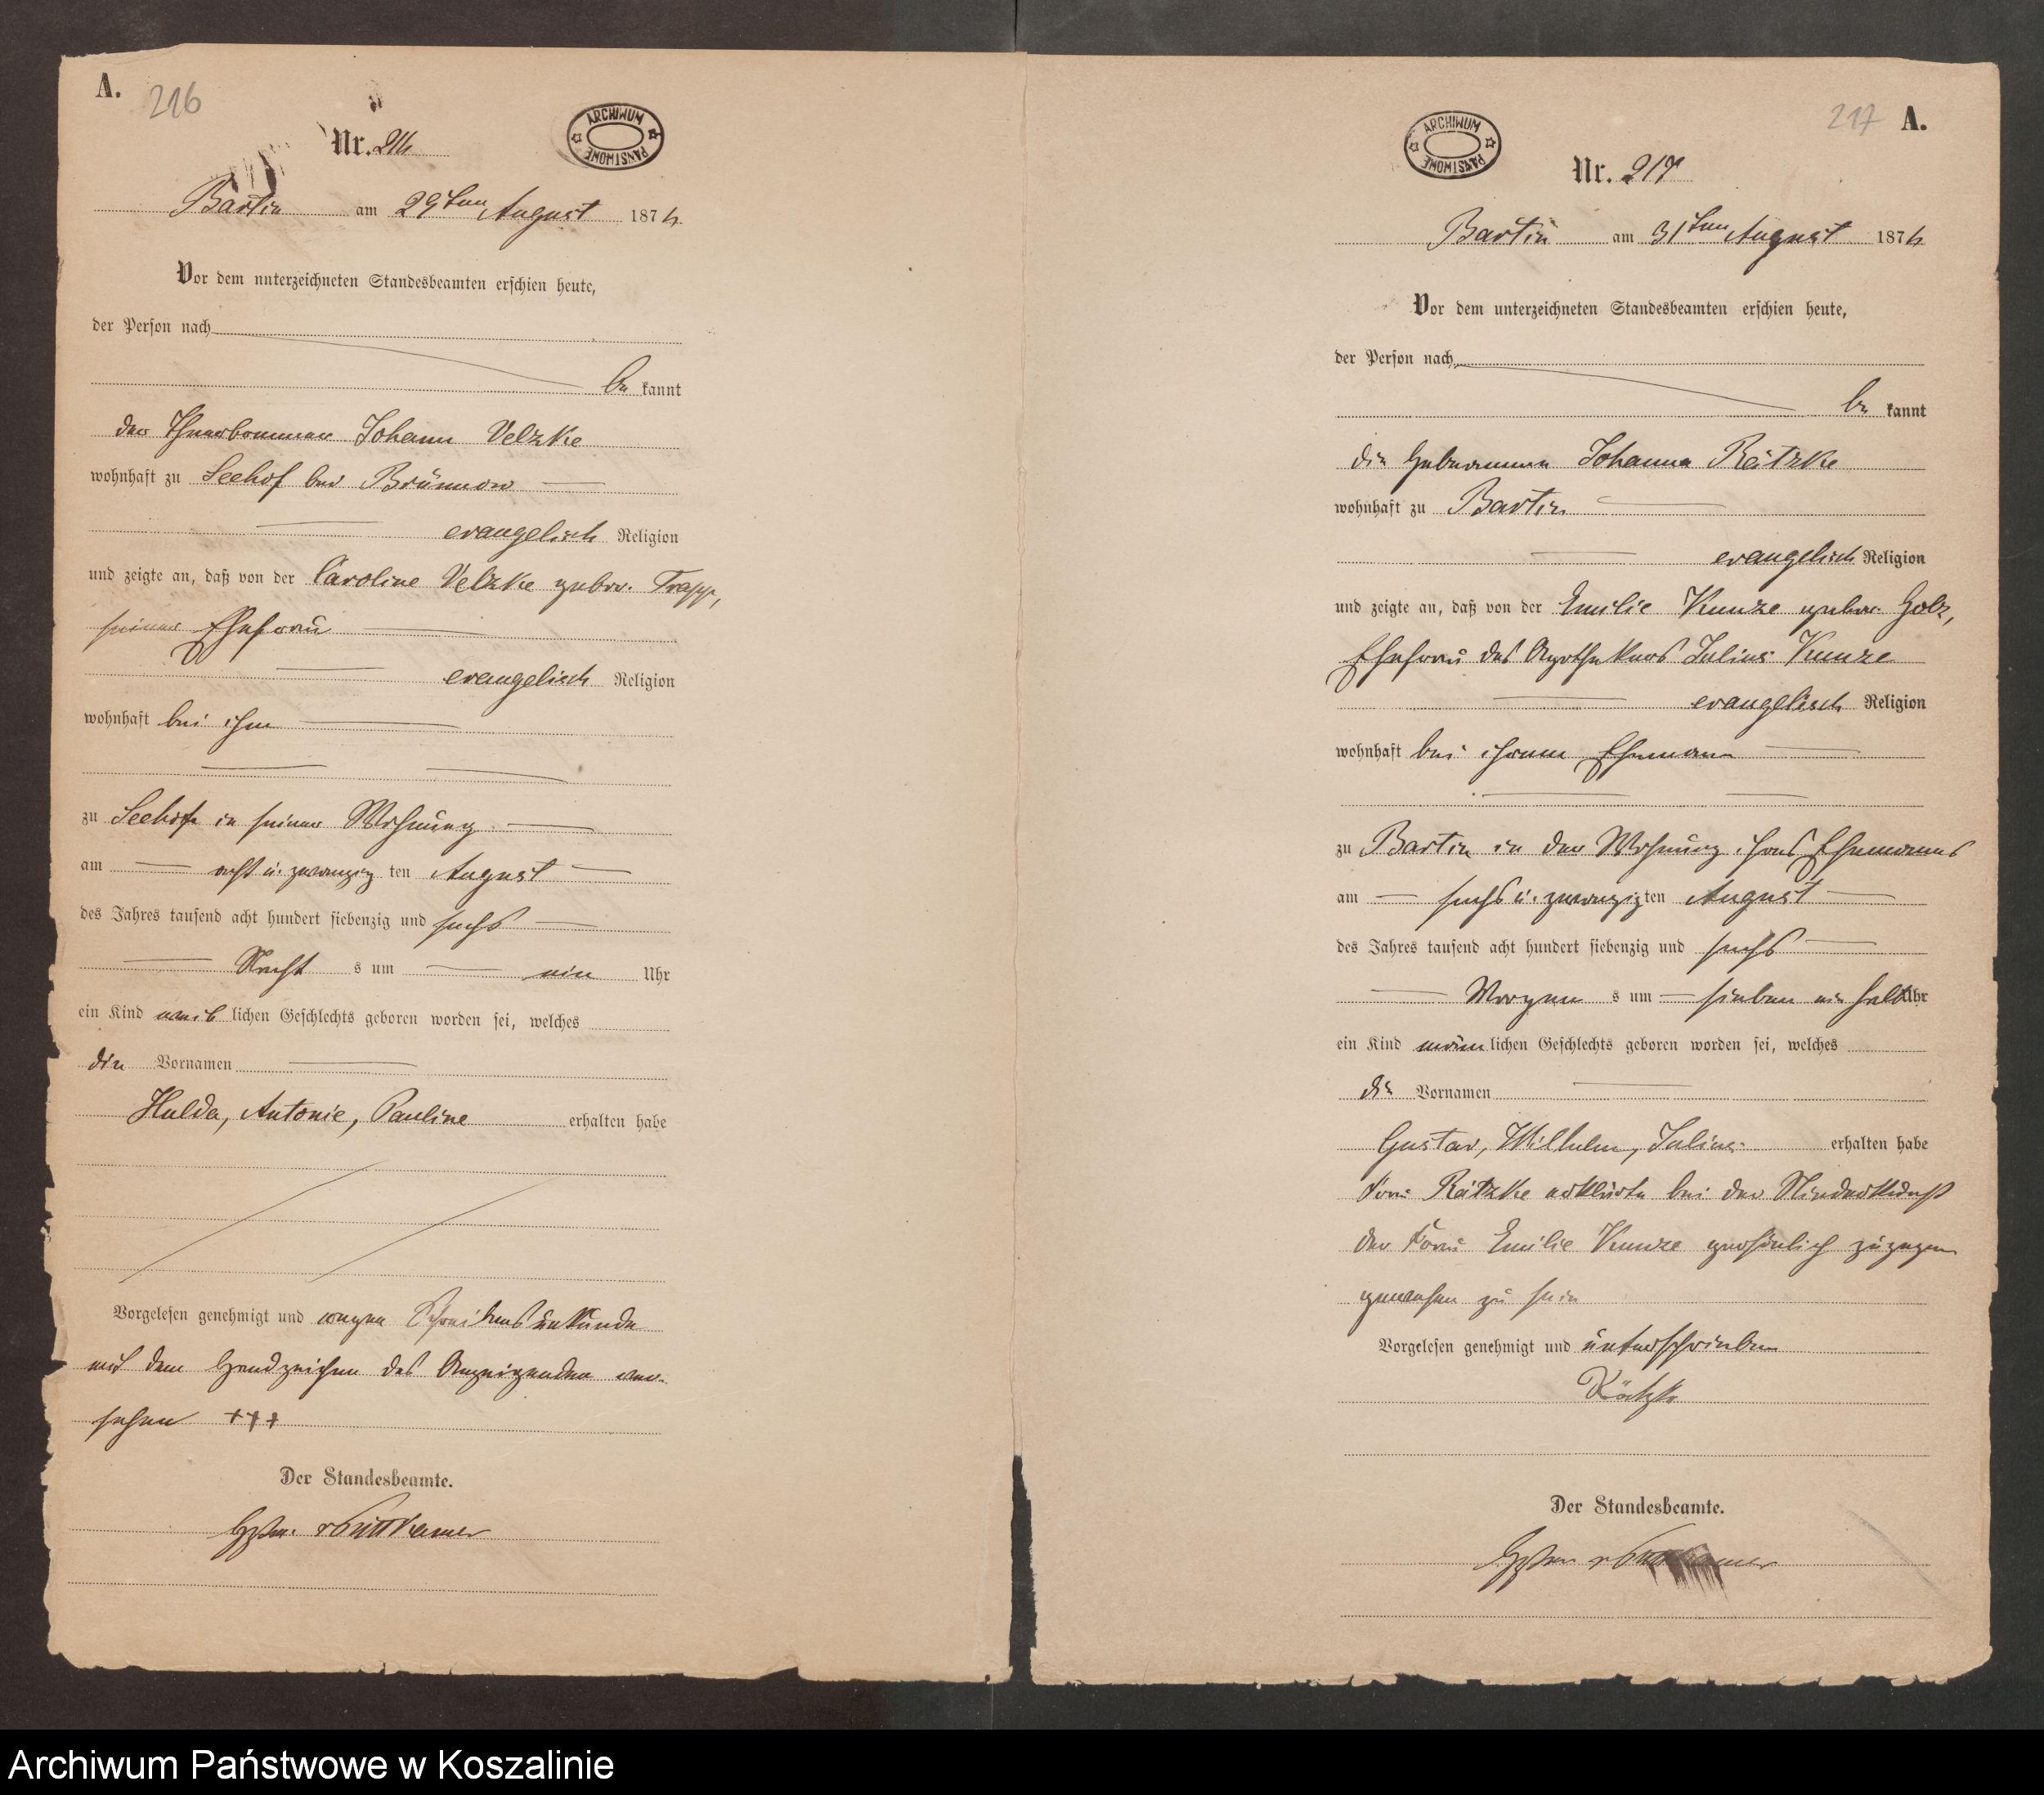 A. 216
Nr. 216
ARCHIWUM PAŃSTWOWE
Bartin am 29ten August 1876
Vor dem unterzeichneten Standesbeamten erschien heute,
der Person nach
be kannt
der Johann Velzke
wohnhaft zu Seehof bei Brünnow
evangelisch Religion
und zeigte an, daß von der Caroline Velzke gebor. Trapp,
seiner Ehefrau
evangelisch Religion
wohnhaft bei ihm
zu Seehof in seiner Wohnung
am acht u. zwanzig ten August
des Jahres tausend acht hundert siebenzig und sechs
Nacht s um ein Uhr
ein Kind weib lichen Geschlechts geboren worden sei, welches
die Vornamen
Hulda, Antonie, Pauline erhalten habe
Vorgelesen genehmigt und wegen Schreibensunkunde
mit dem Handzeichen des Anzeigenden ver-
sehen +++
Der Standesbeamte.
v Puttkamer
217 A.
ARCHIWUM PAŃSTWOWE
Nr. 217
Bartin am 31ten August 1876
Vor dem unterzeichneten Standesbeamten erschien heute,
der Person nach
be kannt
die Hebamme Johanna Rätzke
wohnhaft zu Bartin
evangelisch Religion
und zeigte an, daß von der Emilie Kunze gebor. Golz,
Ehefrau des Apothekers Julius Kunze
evangelisch Religion
wohnhaft bei ihrem Ehemann
zu Bartin in der Wohnung ihres Ehemannes
am sechs u. zwanzigsten August
des Jahres tausend acht hundert siebenzig und sechs
Morgen s um sieben ein halb Uhr
ein Kind männ lichen Geschlechts geboren worden sei, welches
die Vornamen
Gustav, Wilhelm, Julius erhalten habe
Frau Rätzke erklärte bei der Niederkunft
der Frau Emilie Kunze persönlich zugegen
gewesen zu sein
Vorgelesen genehmigt und unterschrieben
Rätzke
Der Standesbeamte.
v Puttkamer
Archiwum Państwowe w Koszalinie